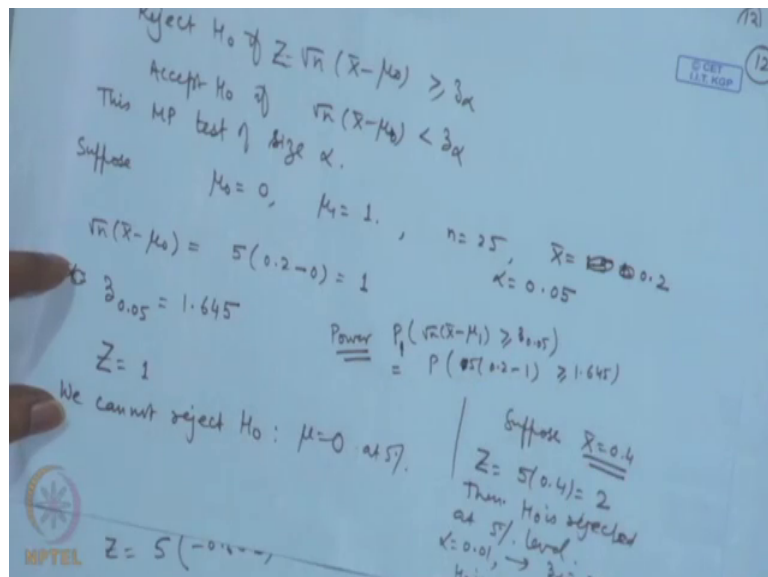 Reject H₀ if Z = √n (x̄ - μ₀) ≥ z_α
Accept H₀ if √n (x̄ - μ₀) < z_α
This MP test of size α.
Suppose μ₀ = 0, μ₁ = 1. , n = 25, x̄ = 0.2
α = 0.05
√n (x̄ - μ₀) = 5(0.2 - 0) = 1
z_0.05 = 1.645
Z = 1
We cannot reject H₀ : μ = 0 at 5%.
Power P₁(√n(x̄ - μ₁) ≥ z_0.05)
= P(5(0.2 - 1) ≥ 1.645)
Suppose x̄ = 0.4
Z = 5(0.4) = 2
Then H₀ is rejected
at 5% level.
α = 0.01, →
Z = 5(
12
© CET
I.I.T. KGP
12
NPTEL